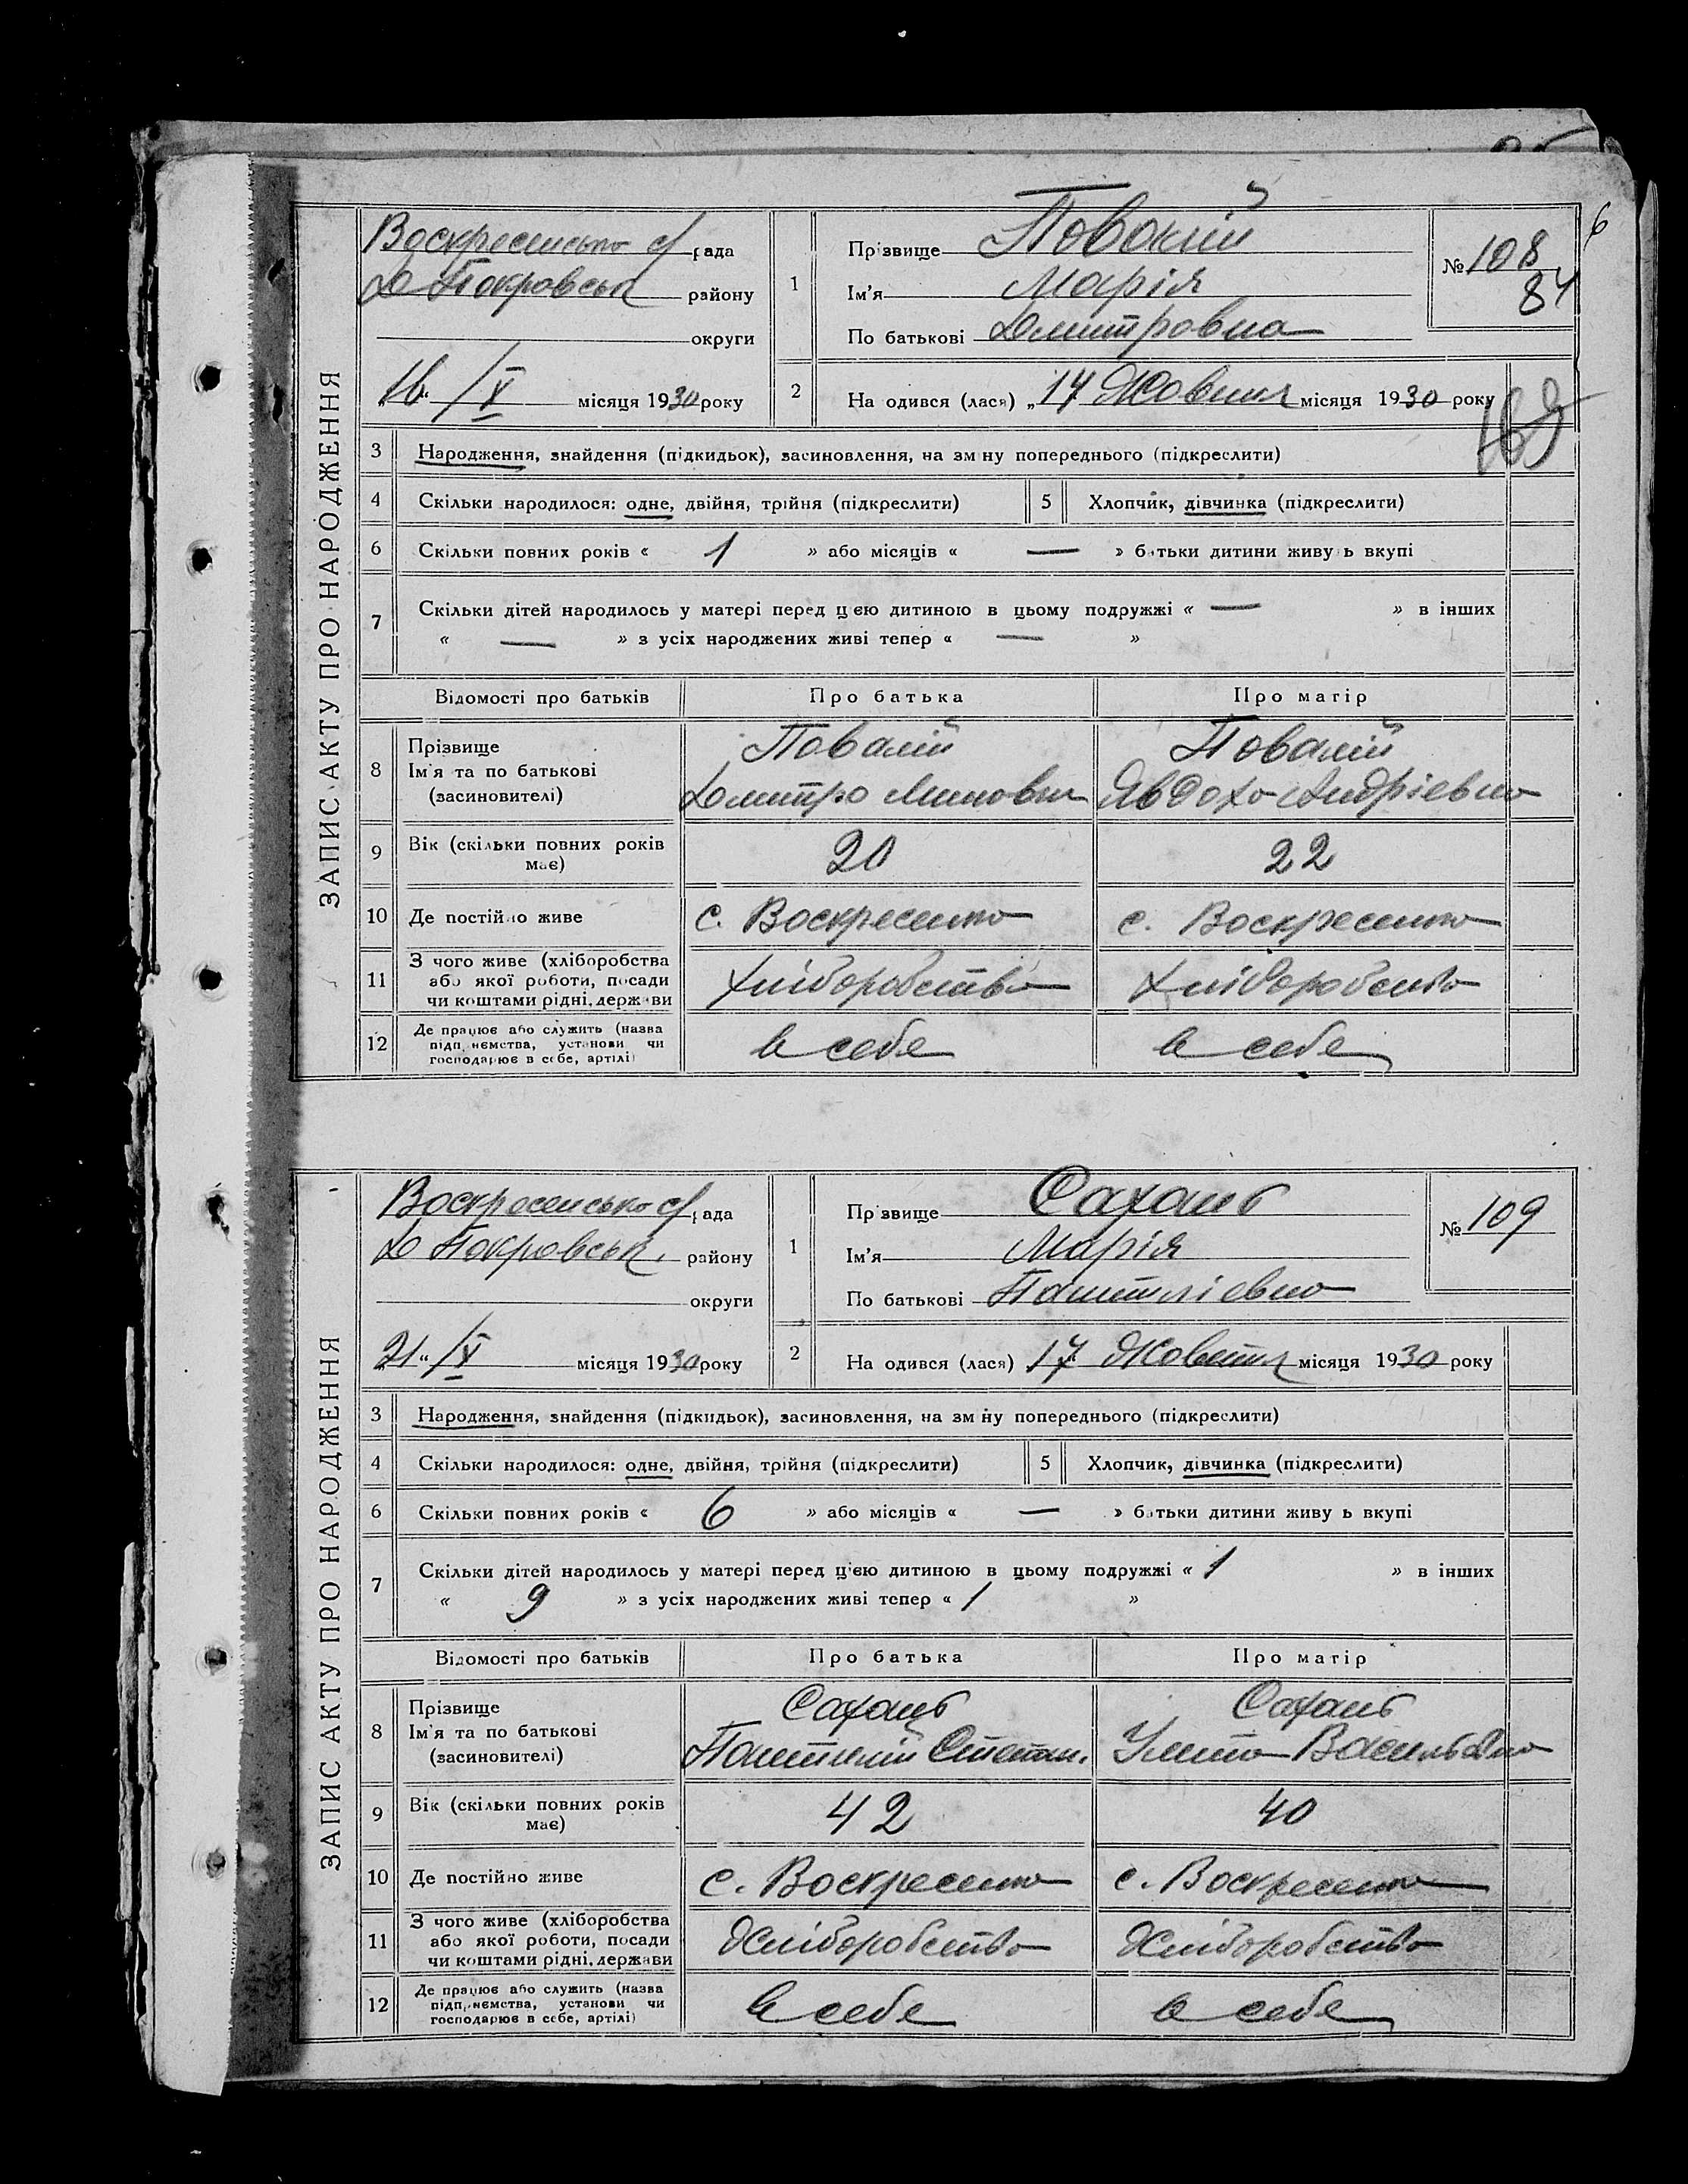 6
ЗАПИС АКТУ ПРО НАРОДЖЕННЯ
Воскресенська с/рада
Д Покровськ району
округи
„16“ /X місяця 1930 року
1
Прізвище Повалій
Ім'я Марія
По батькові Дмитровна
№ 108
84
2
На одився (лася) „14 Жовтня місяця 1930 року
169
3 Народження, знайдення (підкидьок), засиновлення, на зм ну попереднього (підкреслити)
4 Скільки народилося: одне, двійня, трійня (підкреслити) 5 Хлопчик, дівчинка (підкреслити)
6 Скільки повних років « 1 » або місяців « — » батьки дитини живу ь вкупі
7 Скільки дітей народилось у матері перед цією дитиною в цьому подружжі « — » в інших
« — » з усіх народжених живі тепер « — »
Відомості про батьків Про батька Про матір
8 Прізвище Повалій Повалій
Ім'я та по батькові
(засиновителі) Дмитро Минович Явдоха Андріевна
9 Вік (скільки повних років має) 20 22
10 Де постійно живе с. Воскресенка с. Воскресенка
11 З чого живе (хліборобства
або якої роботи, посади
чи коштами рідні, держави Хліборобство Хліборобство
12 Де працює або служить (назва
підп. немства, установи чи
господарює в себе, артілі) в себе в себе
ЗАПИС АКТУ ПРО НАРОДЖЕННЯ
Воскресенська с/рада
Д Покровськ. району
округи
„21“ /X місяця 1930 року
1
Пр звище Сахань
Ім'я Марія
По батькові Пантиліевна
№ 109
2
На одився (лася) 17 Жовтня місяця 1930 року
3 Народження, знайдення (підкидьок), засиновлення, на зм ну попереднього (підкреслити)
4 Скільки народилося: одне, двійня, трійня (підкреслити) 5 Хлопчик, дівчинка (підкреслити)
6 Скільки повних років « 6 » або місяців « — » батьки дитини живу ь вкупі
7 Скільки дітей народилось у матері перед цією дитиною в цьому подружжі « 1 » в інших
« 9 » з усіх народжених живі тепер « 1 »
Відомості про батьків Про батька Про матір
8 Прізвище Сахань Сахань
Ім'я та по батькові
(засиновителі) Пантилій Степан. Улита Васильевна
9 Вік (скільки повних років має) 42 40
10 Де постійно живе с. Воскресенка с. Воскресенка
11 З чого живе (хліборобства
або якої роботи, посади
чи коштами рідні, держави Хліборобство Хліборобство
12 Де працює або служить (назва
підп. немства, установи чи
господарює в себе, артілі) в себе в себе